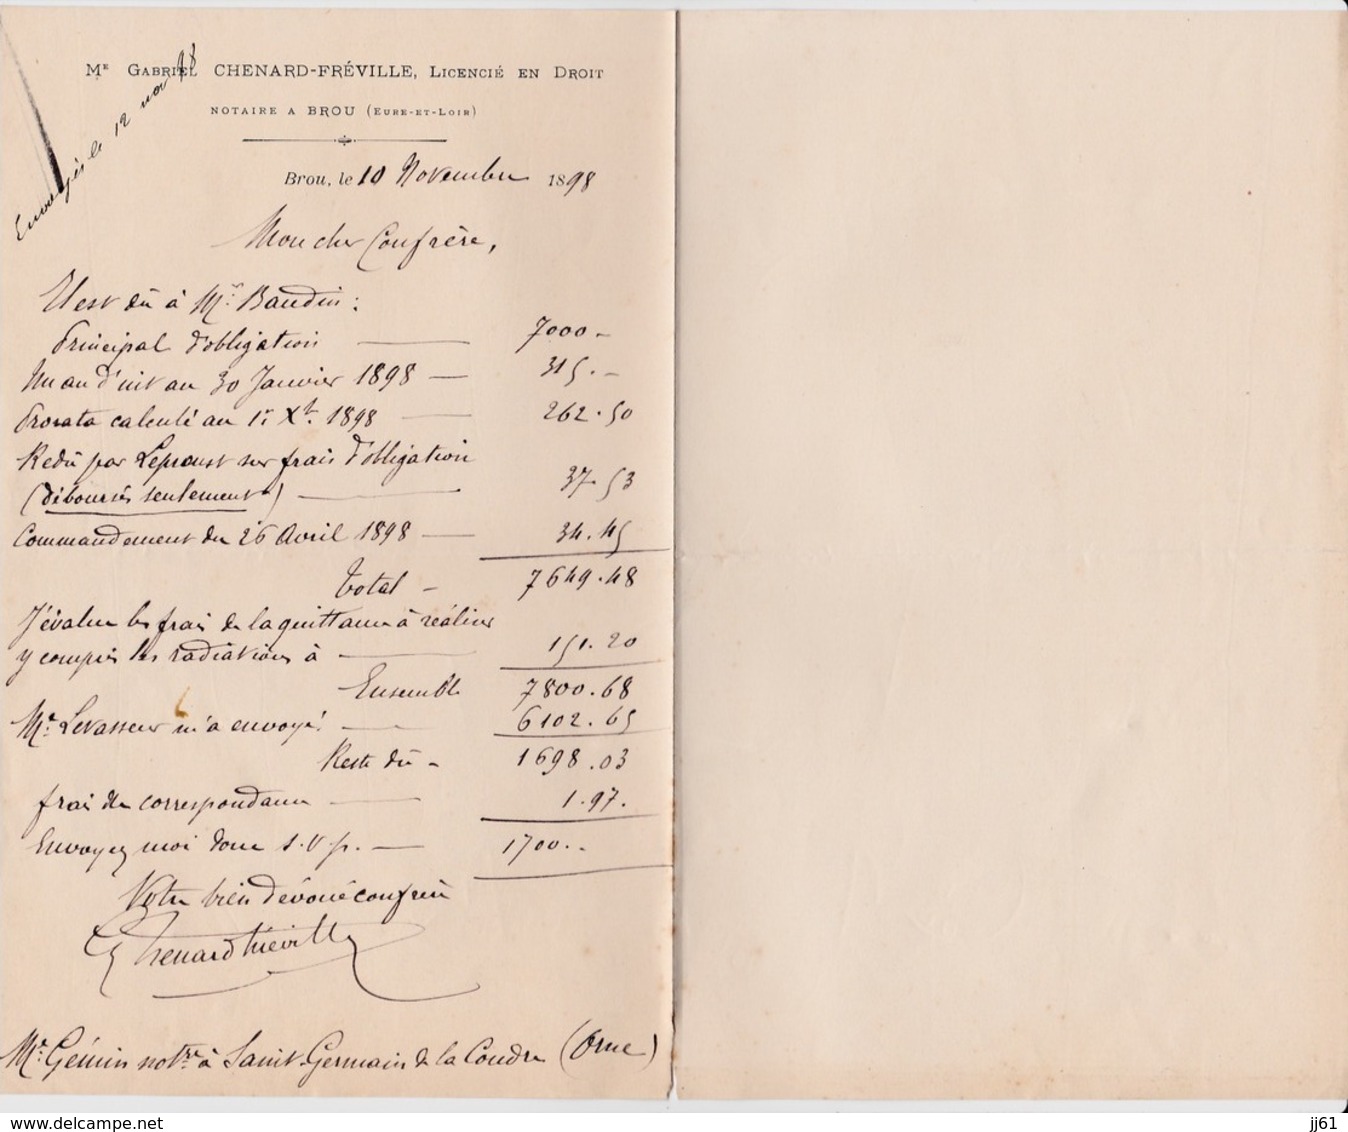 Envoyés le 12 nov 98
Me Gabriel CHENARD-FRÉVILLE, Licencié en Droit
NOTAIRE A BROU (Eure-et-Loir)
Brou, le 10 Novembre 1898
Mon cher Confrère,
Il est dû à Mr. Baudin :
Principal d'obligation — 7000 –
Un an d'int au 30 Janvier 1898 — 315. –
Prorata calculé au 1r Xb. 1898 — 262.50
Redû par Leproust sur frais d'obligation
(déboursés seulement) — 37.53
Commandement du 26 Avril 1898 — 34.45
Total – 7649.48
J'évalue les frais de la quittance à réaliser
y compris les radiations à — 151.20
Ensemble 7800.68
Me Levasseur m'a envoyé — 6102.65
Reste dû – 1698.03
frais de correspondance — 1.97.
Envoyez moi donc s.v.p. — 1700. –
Votre bien dévoué confrère
G Chenard Fréville
Me Gémin notre à Saint-Germain de la Coudre (Orne)
www.delcampe.net
jj61